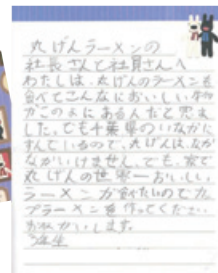 丸げんラーメンの
社長さんと社員さんへ
わたしは、丸げんのラーメンを
食べてこんなにおいしい食物
がこのよにあるんだと思ま
した。でも千葉県のいなかに
すんでいるので、丸げんは、なか
なかいけません。でも、家で
丸げんの世界一おいしい、
ラーメンが食たいのでカ
プラーメンを作ってください。
おねがいします。
5年生